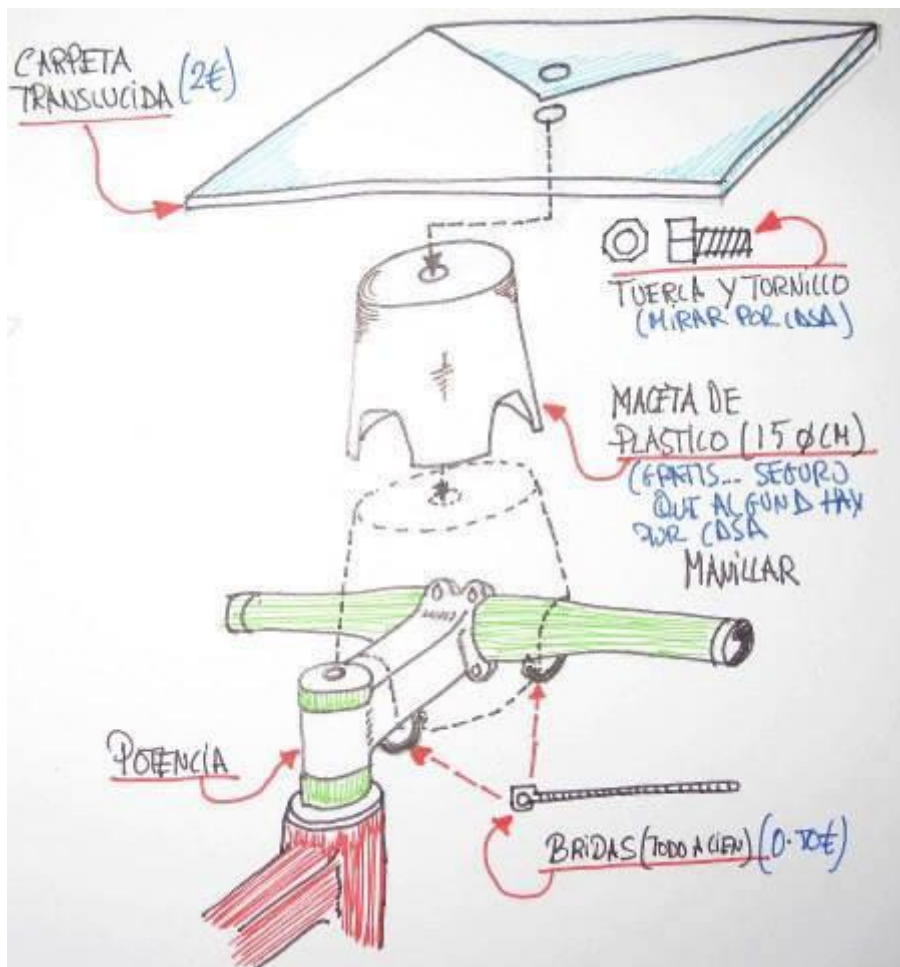 CARPETA
TRANSLUCIDA (2€)
TUERCA Y TORNILLO
(MIRAR POR CASA)
MACETA DE
PLASTICO (15 Ø CM)
(GRATIS... SEGURO
QUE ALGUNA HAY
POR CASA
MANILLAR
POTENCIA
BRIDAS (TODO A CIEN)